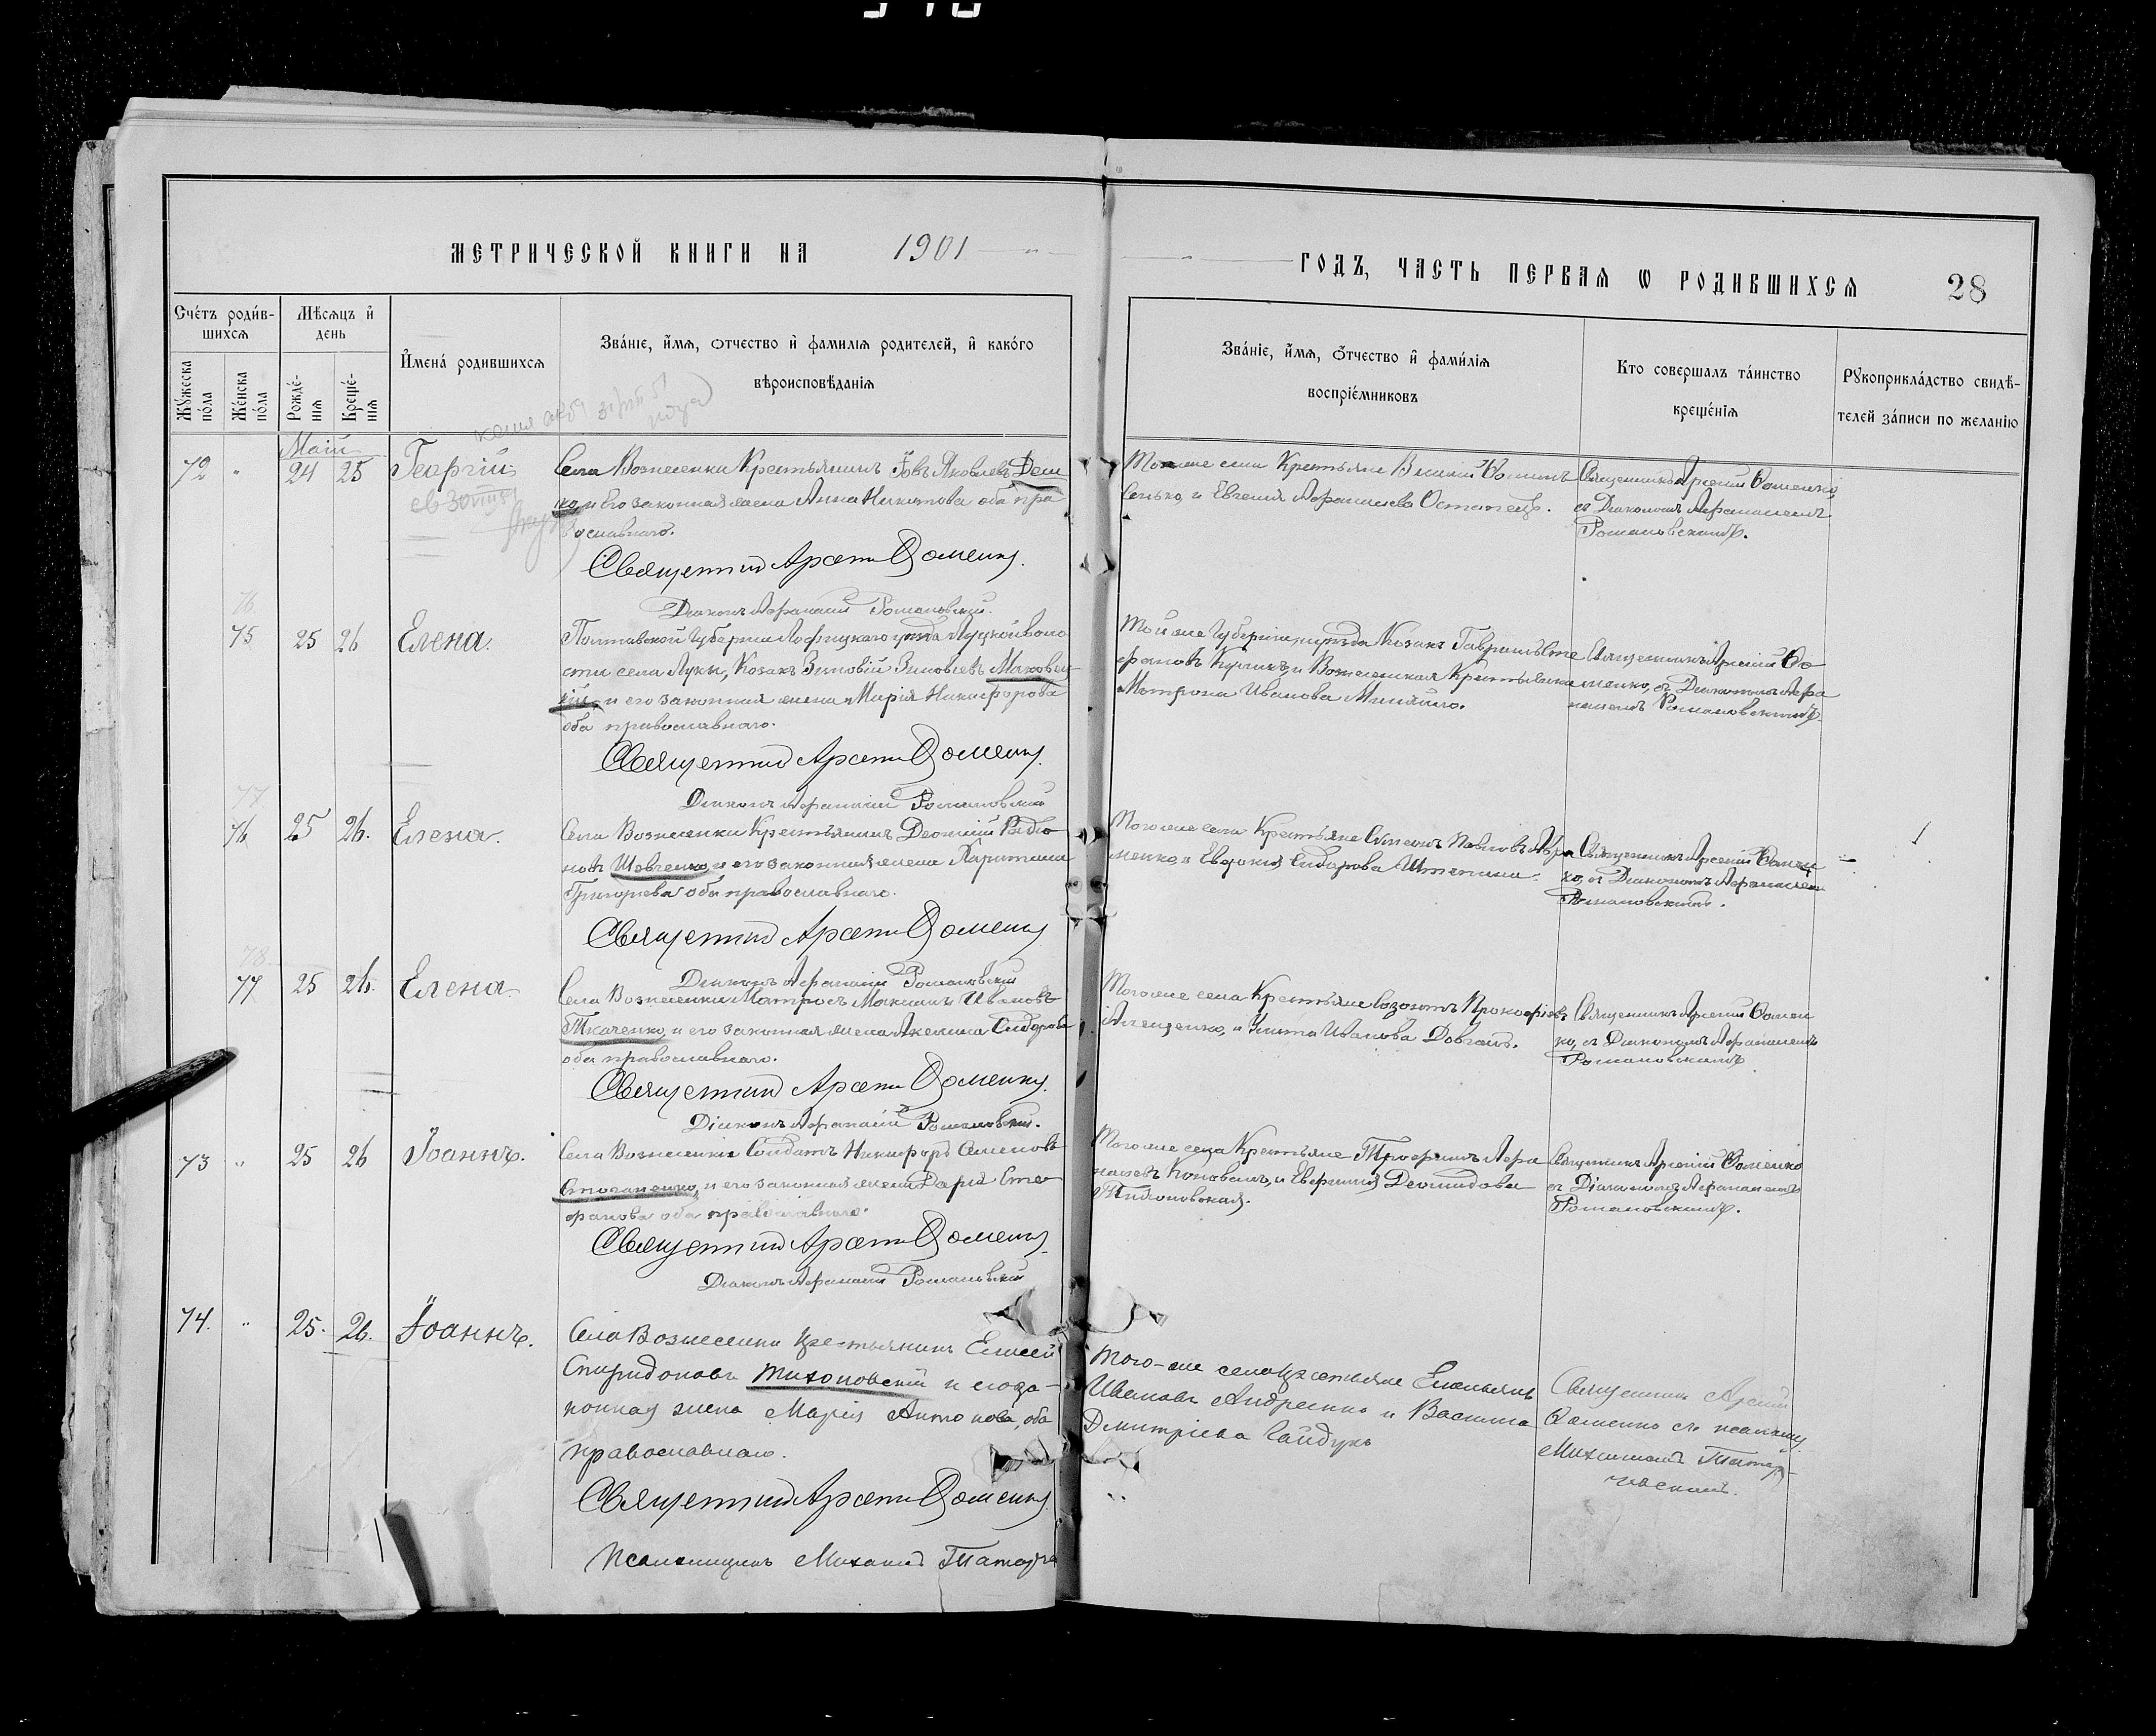 МЕТРИЧЕСКОЙ КНИГИ НА 1901
ГОДЪ, ЧАСТЬ ПЕРВАЯ Ѡ РОДИВШИХСЯ 28
Сче́тъ роди́в-
шихся
Мѣсяцъ и҆
день
И҆мена́ родившихся
Зва́нїе, и҆́мя, ѻтчество и҆ фамилїя родителей, и҆ како́го
вѣроисповѣ́данїя
Мꙋжеска
по́ла
Же́нска
по́ла
Рожде́-
нїя
Креще́-
нїя
Зва́нїе, и҆́мя, ѻ҆́тчество и҆ фами́лїя
воспрїе́мниковъ
Кто совершалъ та́инство
креще́нїя
Рꙋкоприкла́дство свидѣ́-
телей за́писи по желанїю
Май
72 " 24 25 Георгій
Села Вознесенки Крестьянинъ Іовъ Яковлевъ Деш
ко, и его законная жена Анна Никитова оба пра
вославнаго.
Священникъ Арсеній Ѳоменко.
Діаконъ Аѳанасій Романовскій.
Того же села Крестьяне
Сенько, и Евгенія Аѳанасіева Остапецъ.
Священникъ Арсеній Ѳоменко,
съ Діакономъ Аѳанасіемъ
Романовскимъ.
76
75 25 26 Елена.
Полтавской Губерніи Лохвицкаго уезда Луцкой воло
сти села Луки, Козакъ Зиновій Зиновіевъ Маковец
кій, и его законная жена Марія Никифорова
оба православнаго.
Священникъ Арсеній Ѳоменко.
Діаконъ Аѳанасій Романовскій
Той же Губерніи, уезда Козакъ Гавріилъ Сте
фановъ Куликъ, и Вознесенская Крестьянка
Матрона Иванова Миняйло.
Священникъ Арсеній Ѳо
менко, съ Діакономъ Аѳа
насіемъ Романовскимъ.
77
76 25 26. Елена.
Села Вознесенки Крестьянинъ Леонтій Родіо
новъ Шевченко, и его законная жена Харитина
Григорьева оба православнаго.
Священникъ Арсеній Ѳоменко
Діаконъ Аѳанасій Романовскій
Того же села Крестьяне Симеонъ Павловъ Авра
менко, и Евдокія Сидорова Штепина.
Священникъ Арсеній Ѳомен
ко, съ Діакономъ Аѳанасіемъ
Романовскимъ.
78
77 25 26. Елена.
Села Вознесенки Матросъ Максимъ Ивановъ
Ткаченко, и его законная жена Акелина Сидорова
оба православнаго.
Священникъ Арсеній Ѳоменко.
Діаконъ Аѳанасій Романовскій.
Того же села Крестьяне Созонтъ Прокофіевъ
и Улита Иванова Довгаль.
Священникъ Арсеній Ѳомен
ко, съ Діакономъ Аѳанасіемъ
Романовскимъ
73 " 25 26 Іоаннъ.
Села Вознесенки Солдатъ Никифоръ Семеновъ
и его законная жена Дарія Сте
фанова оба православнаго.
Священникъ Арсеній Ѳоменко
Діаконъ Аѳанасій Романовскій
Того же села Крестьяне Трофимъ Аѳа
насіевъ Коноваль, и Евфимія Леонидова
Тихоновская.
Священникъ Арсеній Ѳоменко
съ Діакономъ Аѳанасіемъ
Романовскимъ.
74. " 25. 26. Іоаннъ.
Села Вознесенки крестьянинъ Елисей
Спиридоновъ Тихоновскій и его за-
конная жена Марія Антонова, оба
православнаго.
Священникъ Арсеній Ѳоменко
Псаломщикъ Михаилъ
Того-же села крестьяне Емельянъ
Ивановъ Андреенко и Васса
Дмитріева Гайдукъ
Священникъ Арсеній
Ѳоменко съ псаломщ.
Михаиломъ